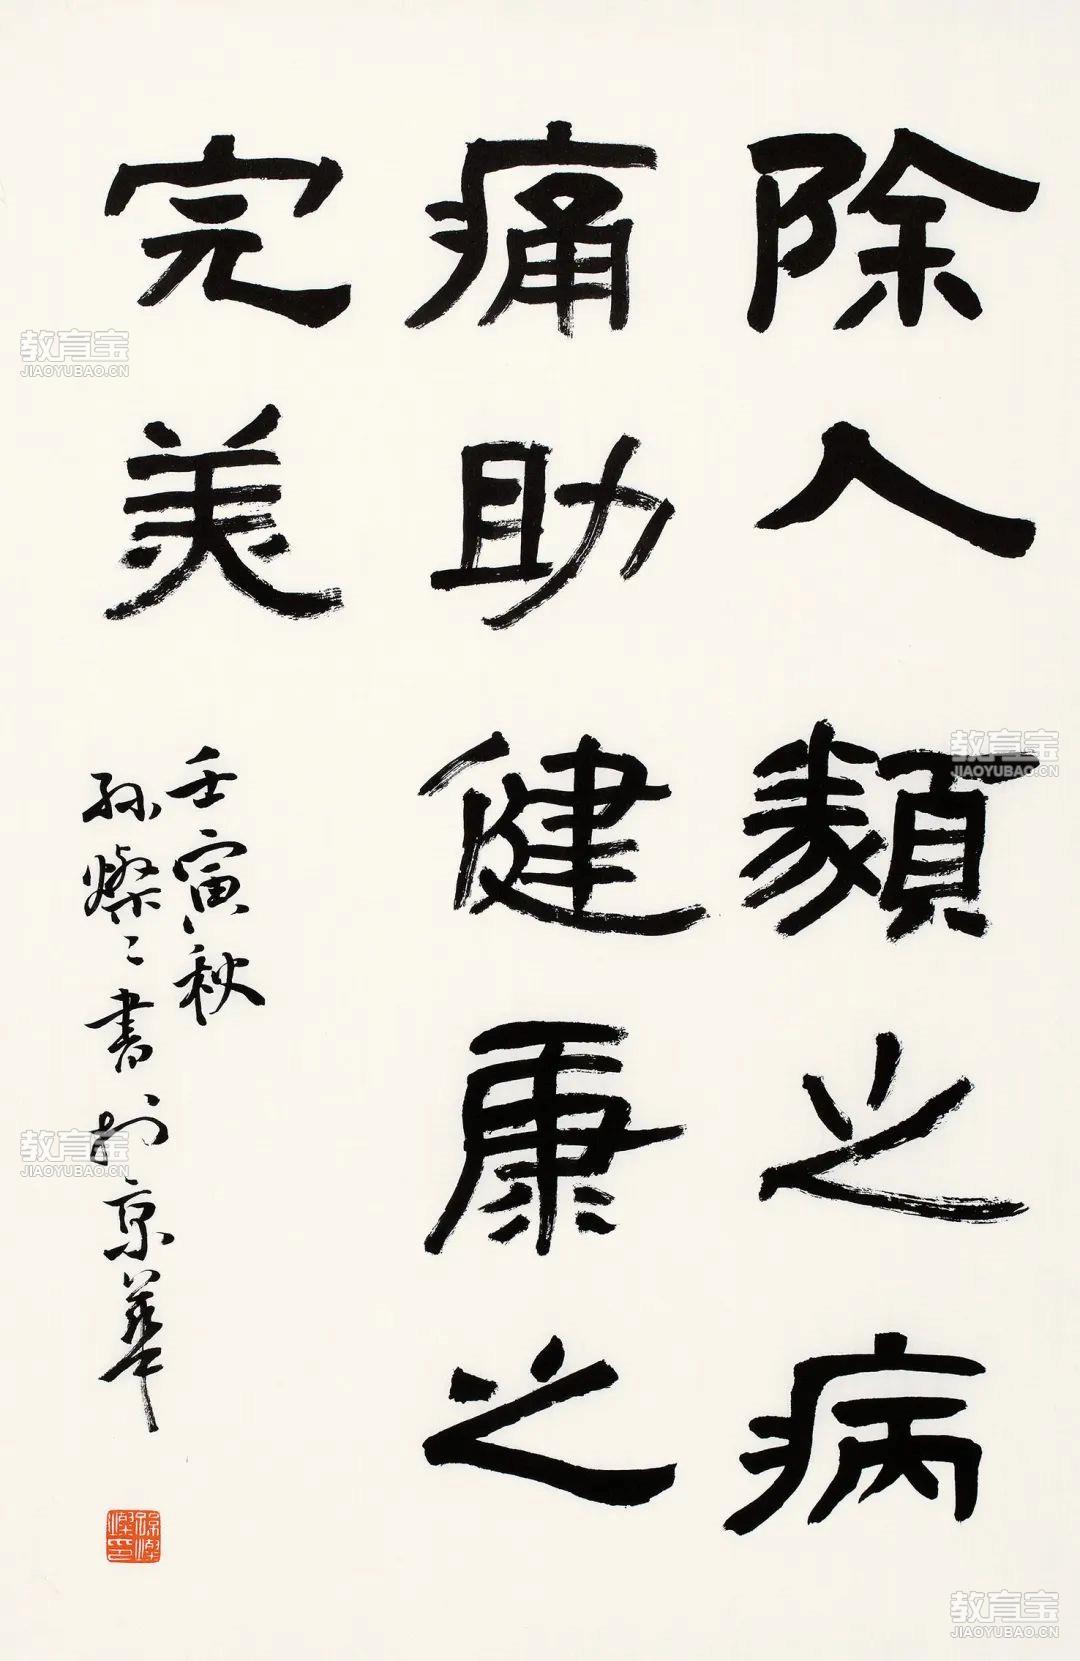 除人類之病
痛助健康之
完美
壬寅秋
孫燦燦書於京華
孫燦燦印
教育宝
JIAOYUBAO.CN
教育宝
JIAOYUBAO.CN
教育宝
JIAOYUBAO.CN
教育宝
JIAOYUBAO.CN